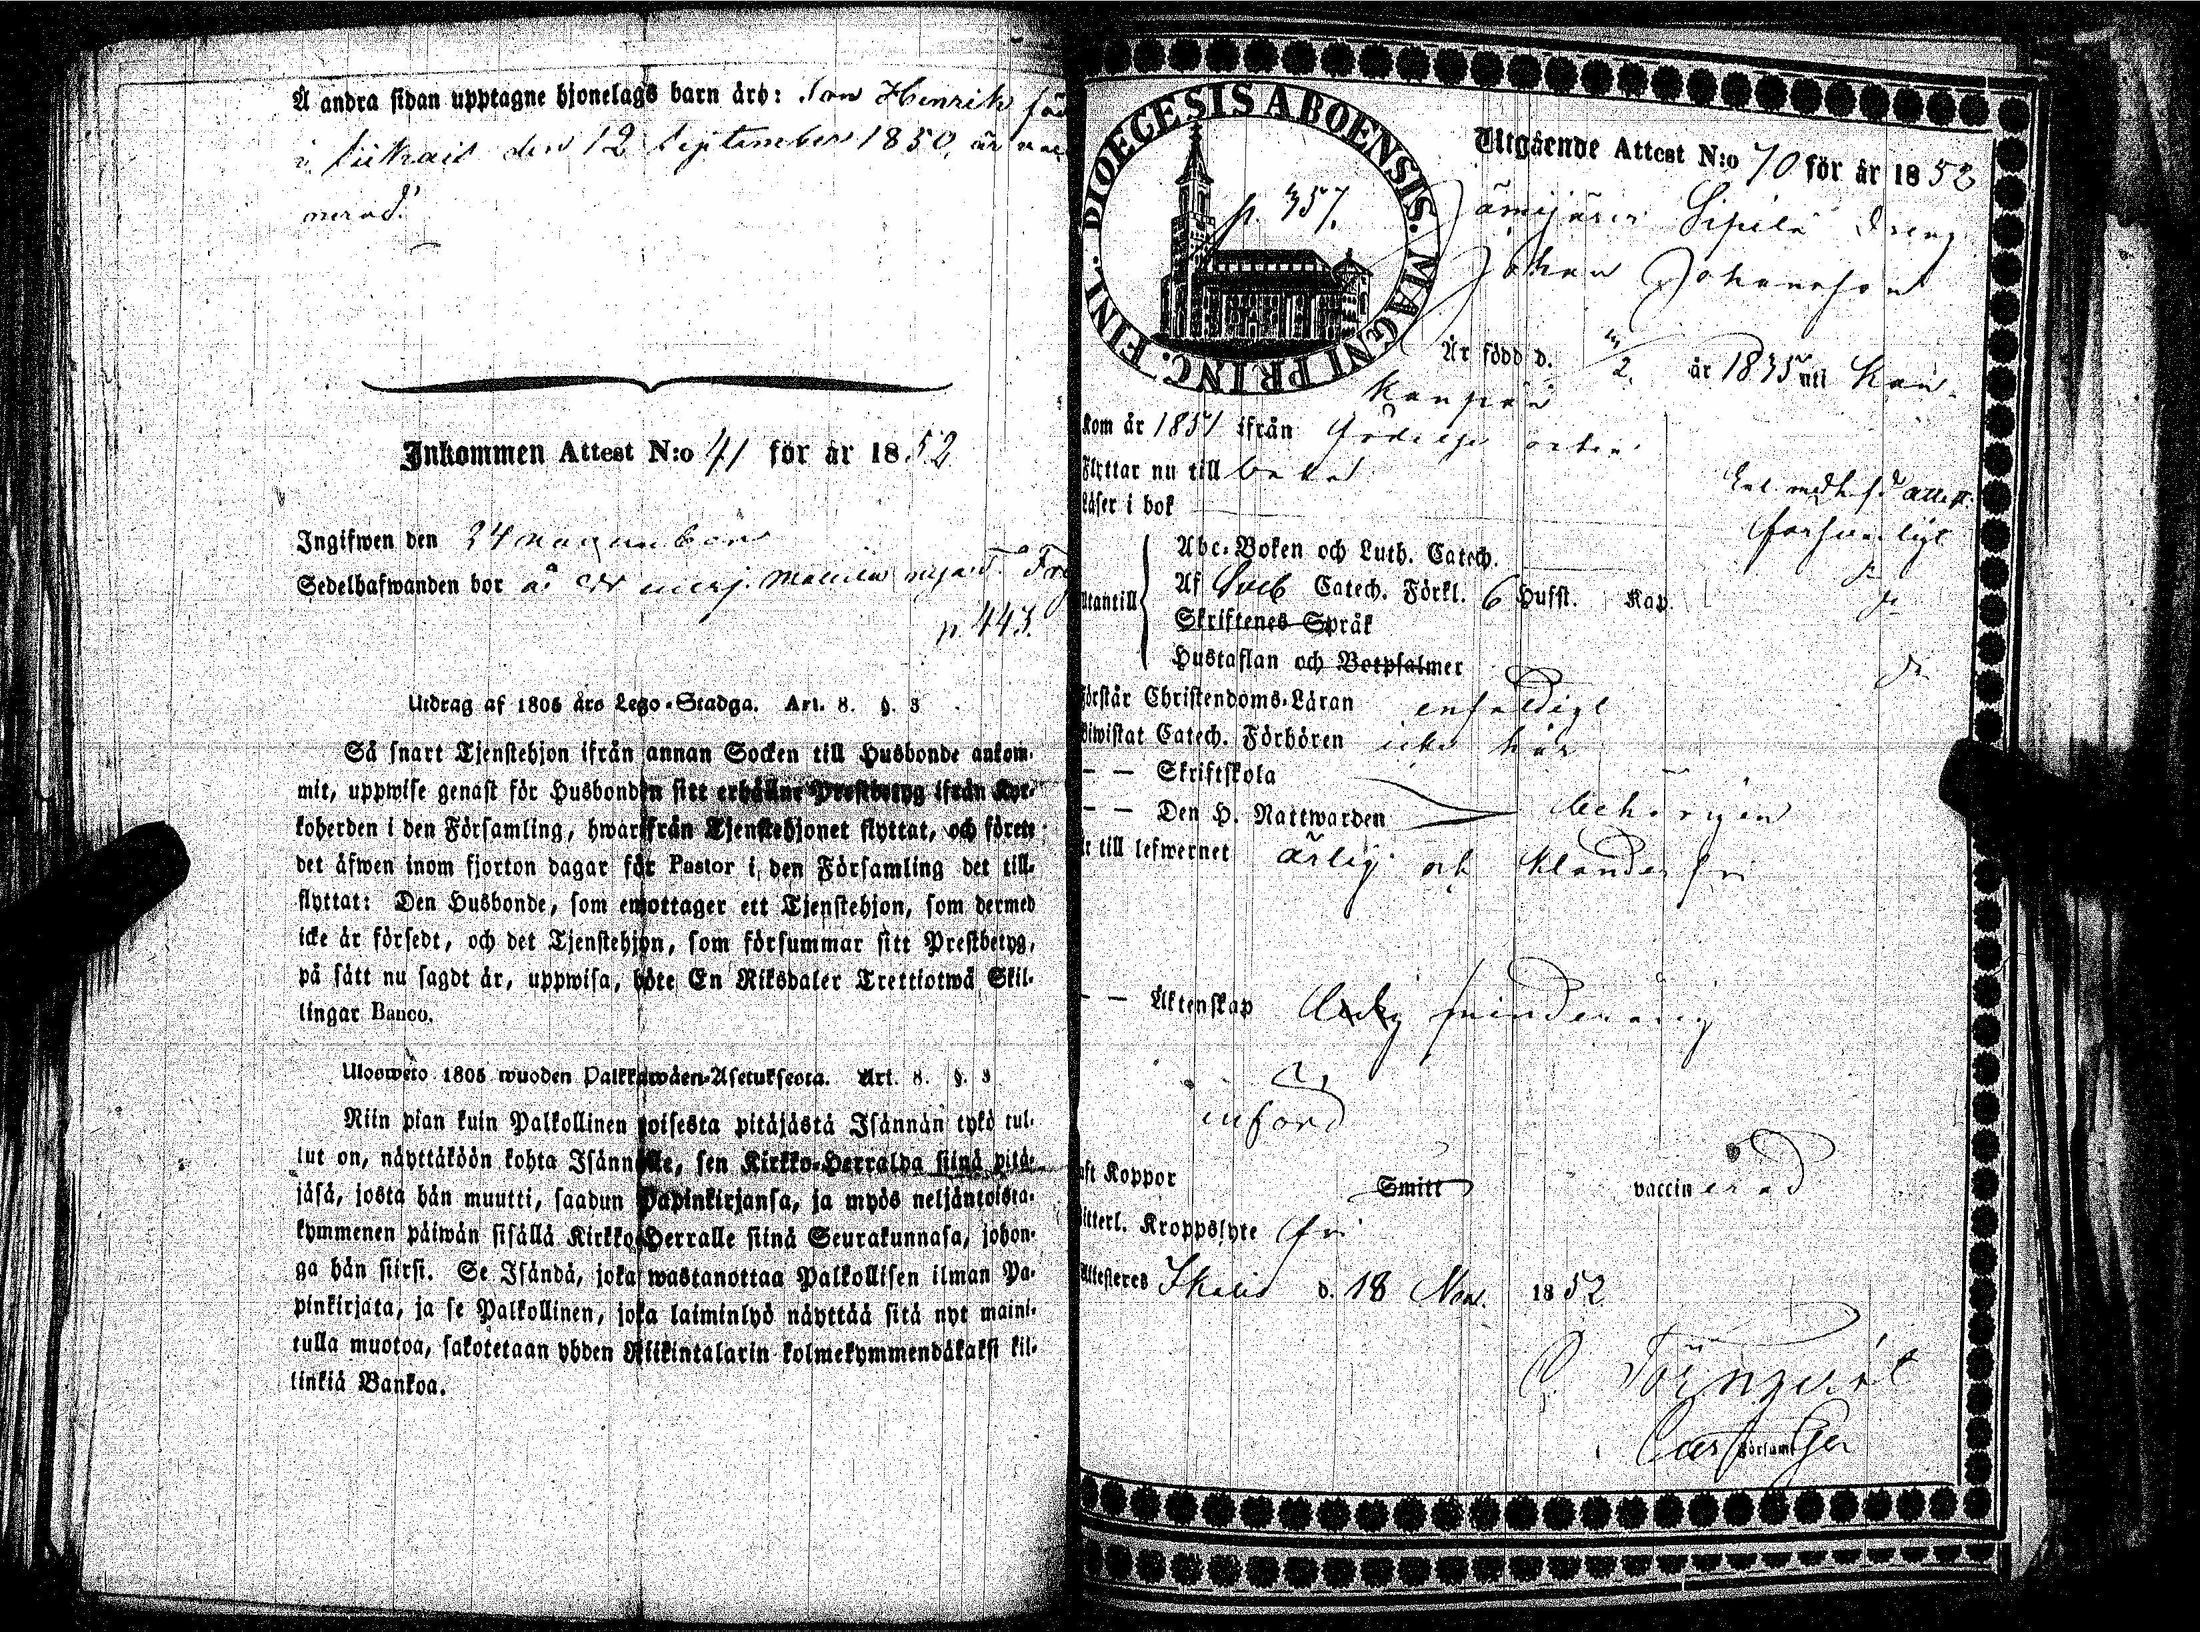 Å andra sidan upptagne hjonelags barn äro: Son Henrik föd
i den 12 September 1850, är vac
nerad.
Inkommen Attest N:o 41 för år 1852
Ingifwen den 24 november
Sedelhafwanden bor å
p. 443.
Utdrag af 1805 års Lego-Stadga. Art. 8. §. 3
Så snart Tjenstehjon ifrån annan Socken till Husbonde ankom-
mit, uppwise genast för Husbonden sitt erhållne Prestbetyg ifrån Kyr-
koherden i den Församling, hwarifrån Tjenstehjonet flyttat, och förete
det äfwen inom fjorton dagar för Pastor i den Församling det till-
flyttat: Den Husbonde, som emottager ett Tjenstehjon, som dermed
icke är försedt, och det Tjenstehjon, som försummar sitt Prestbetyg,
på sätt nu sagdt är, uppwisa, böte En Riksdaler Trettiotwå Skil-
lingar Banco.
Ulosweto 1805 wuoden Palkkawäen-Asetuksesta. Art. 8. §. 3
Niin pian kuin Palkollinen toisesta pitäjästä Isännän tykö tul-
lut on, näyttäköön kohta Isännälle, sen Kirkko-Herralda siinä pitä-
jäsä, josta hän muutti, saadun Papinkirjansa, ja myös neljäntoista-
kymmenen päiwän sisällä Kirkko-Herralle siinä Seurakunnasa, johon-
ga hän siirsi. Se Isändä, joka wastanottaa Palkollisen ilman Pa-
pinkirjata, ja se Palkollinen, joka laiminlyö näyttää sitä nyt maini-
tulla muotoa, sakotetaan yhden Riikintalarin kolmekymmendäkaksi kil-
linkiä Bankoa.
DIOECESIS ABOENSIS. MAGNI PRINC. FINL.
p. 357.
Utgående Attest N:o 70 för år 1852
Jämijärvi Sipilä Dreng
Johan Johansson
Är född d. 2. år 1835 uti Kan-
kanpää
kom år 1851 ifrån orten
Flyttar nu till
Läser i bok försvarligt
Abc-Boken och Luth. Catech.
Utantill Af Sveb Catech. Förkl. 6 Hufst. Kap.
Skriftenes Språk
Hustaflan och Botpsalmer
Förstår Christendoms-Läran enfaldigt
Biwistat Catech. Förhören icke här
— — Skriftskola
— — Den H. Nattwarden behörigen
Är till lefwernet ärlig och klanderfri
— — Äktenskap minderårig
införd
Haft Koppor Smitt vaccinerad
Witterl. Kroppslyte fri
Attesteras Ikalis d. 18 Nov. 1852
Törnqvist
Församl.